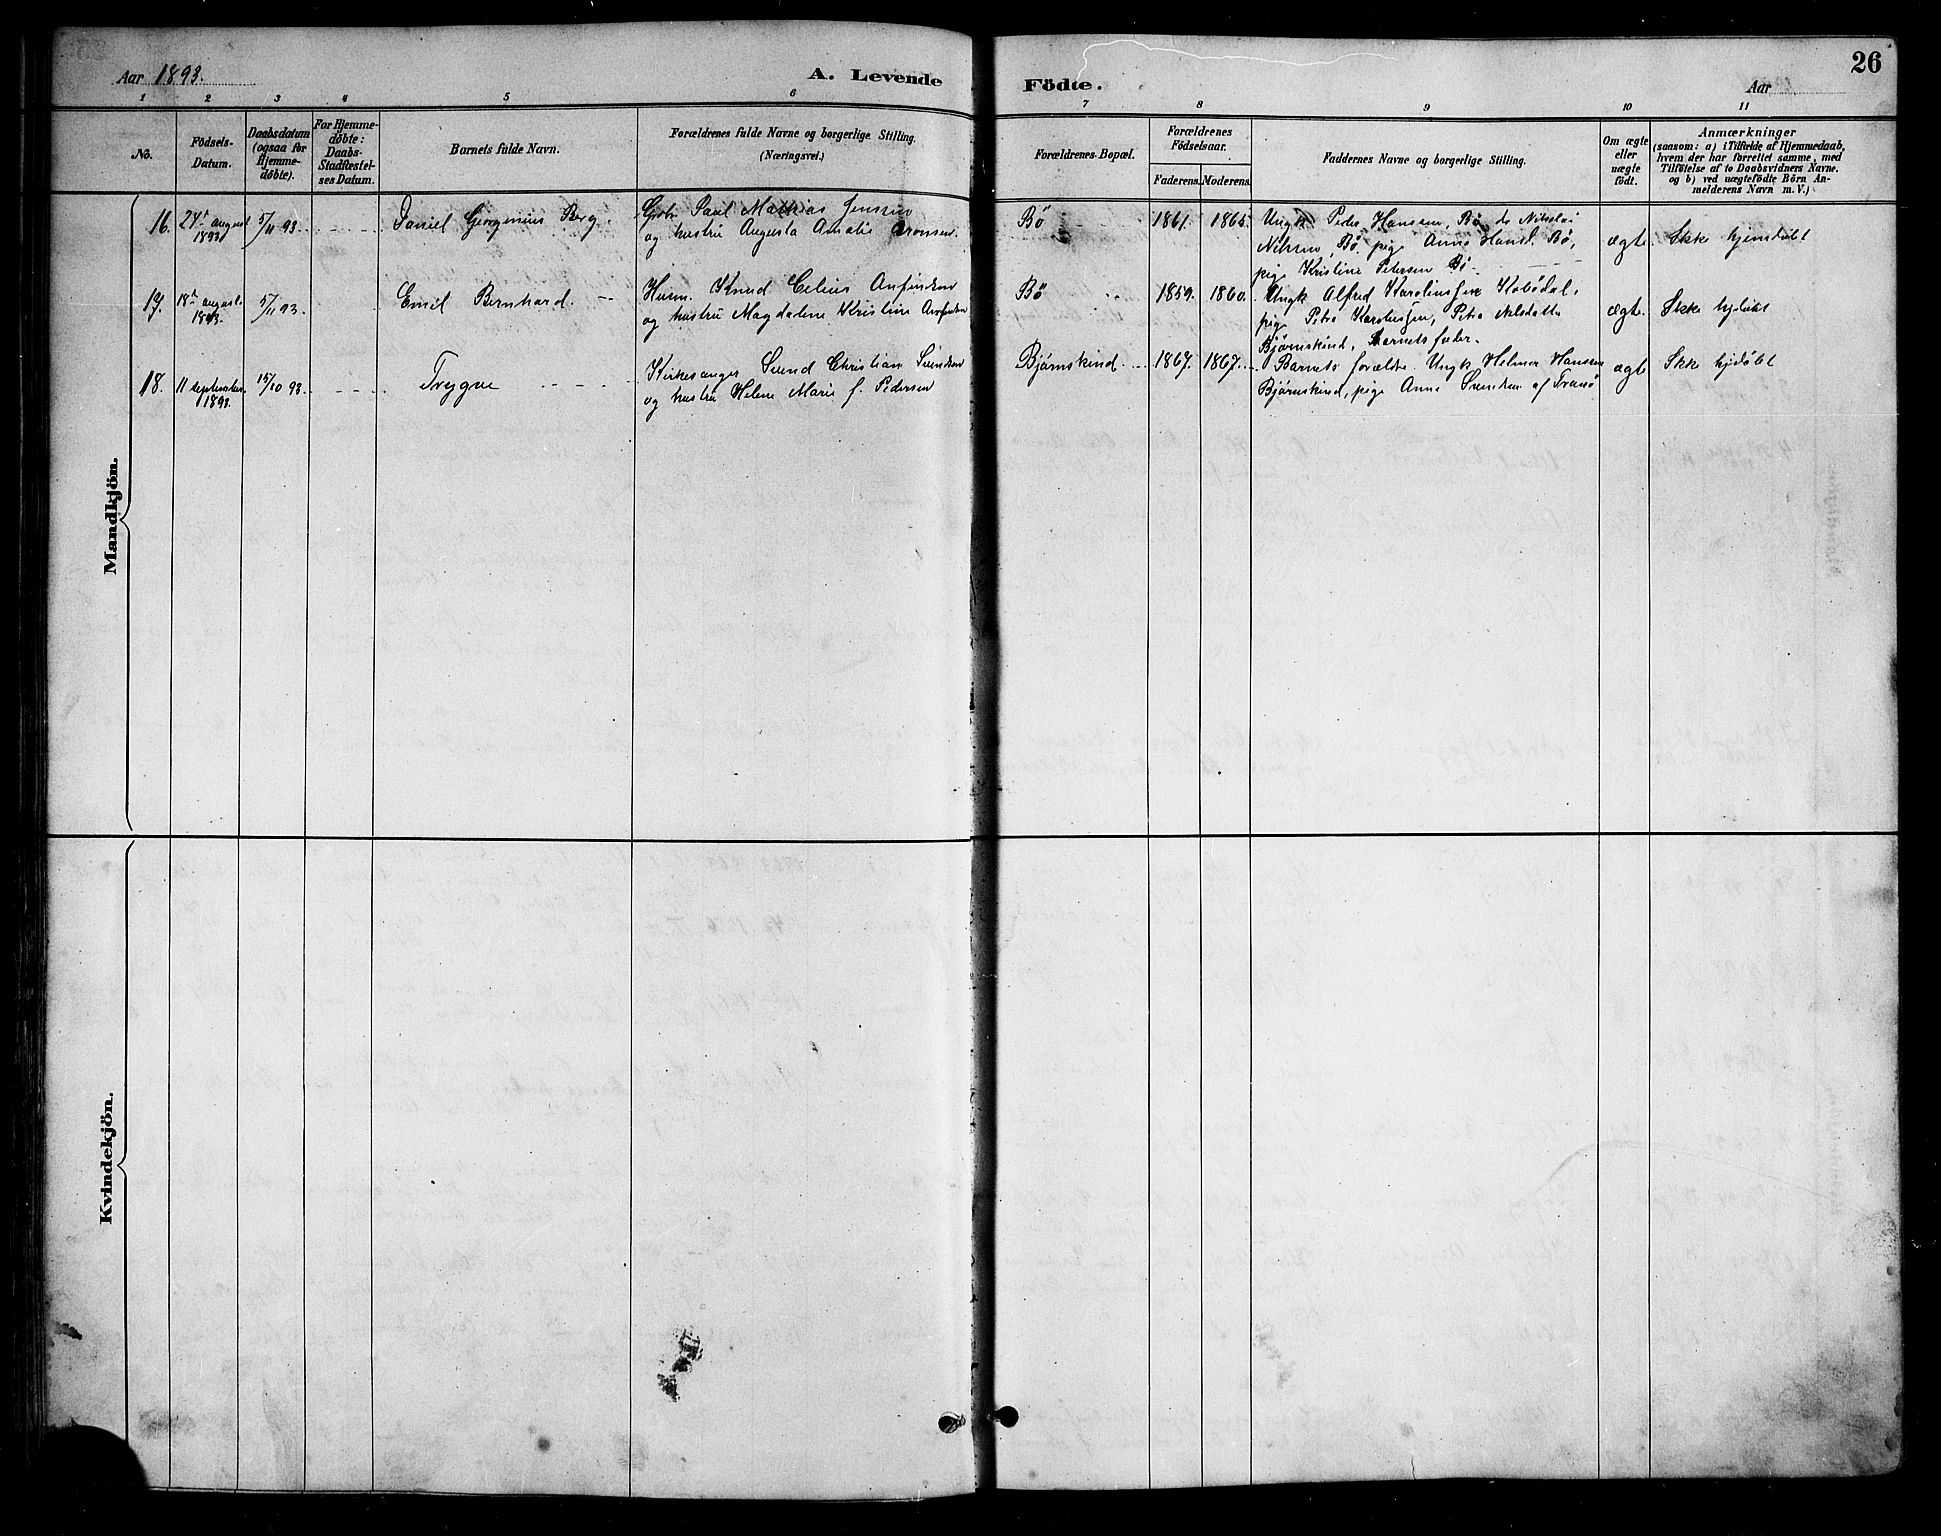 Aar 1893.
A. Levende Födte.
Aar
26
1 2 3 4 5 6 7 8 9 10 11
No.
Födsels-
Datum.
Daabsdatum
(ogsaa for
Hjemme-
döbte).
For Hjemme-
döbte:
Daabs-
Stadfæstel-
ses Datum.
Barnets fulde Navn.
Forældrenes fulde Navne og borgerlige Stilling.
(Næringsvei.)
Forældrenes Bopæl.
Forældrenes
Födselsaar.
Faderens. Moderens.
Faddernes Navne og borgerlige Stilling.
Om ægte
eller
uægte
födt.
Anmærkninger
(saasom: a) i Tilfælde af Hjemmedaab,
hvem der har forrettet samme, med
Tilföielse af to Daabsvidners Navne,
og b) ved uægtefödte Börn An-
melderens Navn m. V.)
Mandkjön.
16.
august
1893
5/11 93.
Daniel Georgenius Berg.
Paul Mathias Jenssen
og hustru Augusta Amalie
Bö
1861. 1865.
Ungk Peder Hansen, Bö, do Nikolai
Nilssen, Bö, pige Anna Hansd. Bö,
pige Kristine Petersen Bö
ægte
Ikke hjemdöbt
17.
18de august.
1893
5/11 93.
Emil Bernhard.
Husm. Knud Celius Anfindsen
og hustru Magdalene Kristine Anfindsen
Bö
1859. 1860.
Ungk Alfred Karoliussen
pige Petra Karoliussen, Petra Nilsdatter
Bjørnskind, Barnets fader.
ægte.
Ikke hjdöbt
18.
11 september
1893.
15/10 93.
Trygve
Kirkesanger Svend Christian Svendsen
og hustru Helene Marie f. Pedersen
Bjørnskind
1867. 1867.
Barnets forældre. Ungk Helmer Hanssen
Bjørnskind, pige Anna Svendsen af Tranö
ægte
Ikke hjdöbt
Kvindekjön.